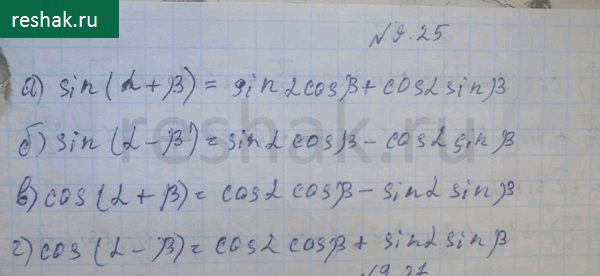 reshak.ru
№9.25
а) sin(α+β) = sinαcosβ + cosαsinβ
б) sin(α-β) = sinαcosβ - cosαsinβ
в) cos(α+β) = cosαcosβ - sinαsinβ
г) cos(α-β) = cosαcosβ + sinαsinβ
№9.27